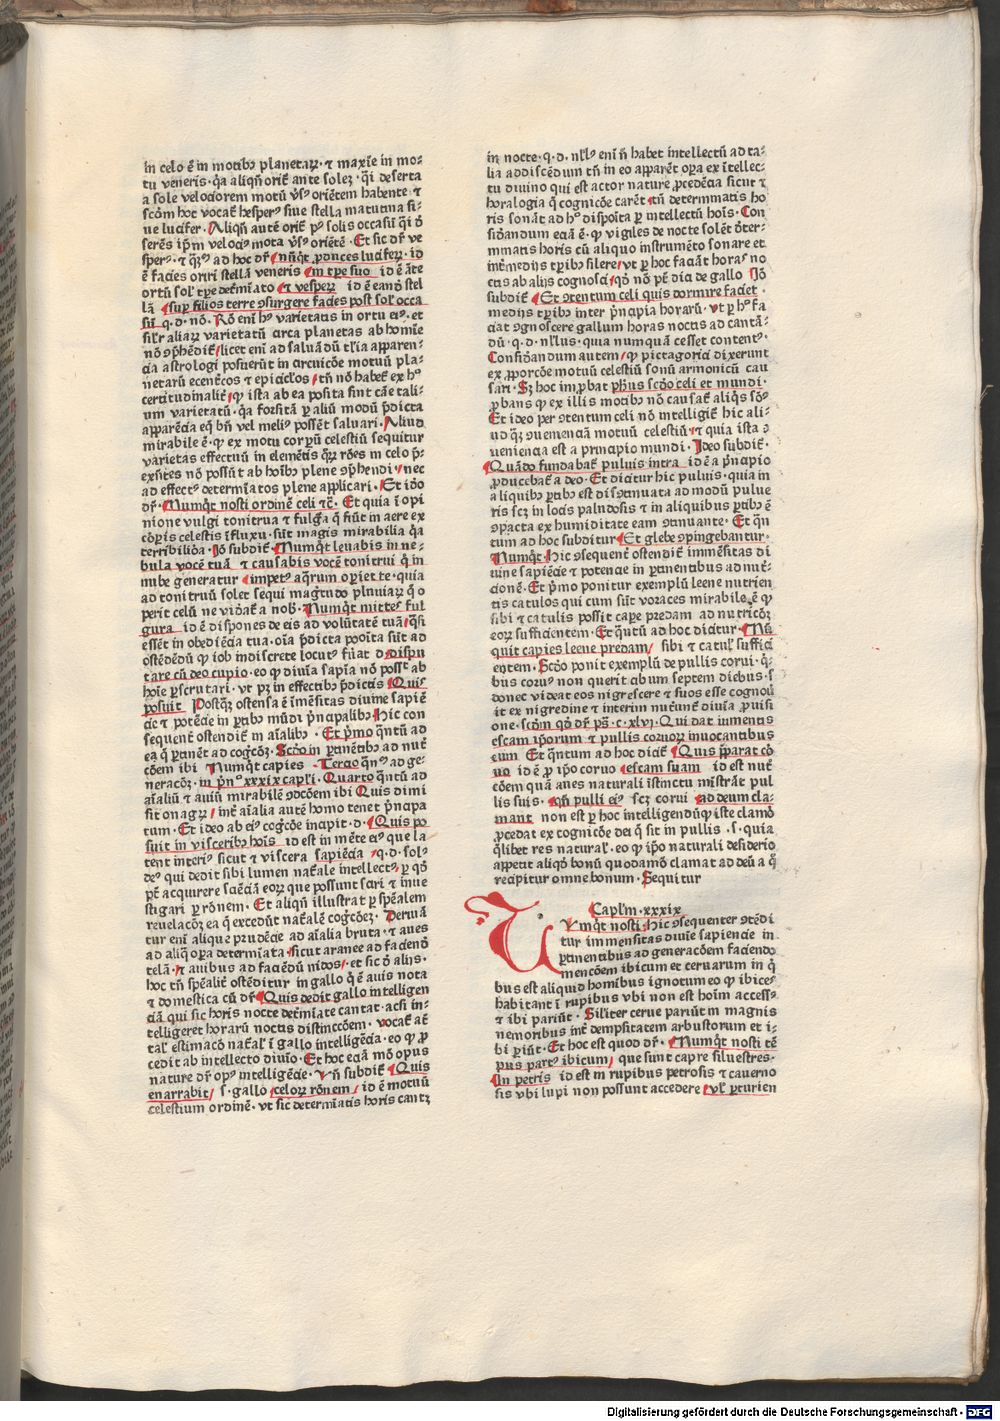 in celo ē in motibꝫ planetaꝝ· ⁊ maxīe in mo⸗
tu veneris· q̄a aliqn̄ oriť ante solez· q̄i deserta
a sole velociorem motū vſꝰ oriētem habente ⁊
scōm hoc vocať hesperꝰ siue stella matutina si⸗
ue lucifer· Aliqn̄ autē oriť pꝰ solis occasū q̄i ō
serēs ip̄m velociꝰ mota vſꝰ oriētē· Et sic dr̄ ve
sperꝰ· ⁊ q̄ꝫꝰ ad hoc dr̄ nūqt ꝓduces luciferꝝ· id
ē facies oriri stellā veneris in tꝑe suo id ē āte
ortū sol' tꝑe det̄mīato ⁊ vesperꝝ id ē eanō stel
lā suꝑ filios terre ꝯsurgere facies post sol' occa
sū q· d· nō· Rō enī hꝰ varietatis in ortu eiꝰ· et
sil'r aliaꝝ varietatū circa planetas ab homīe
nō ꝯp̄hēdiť· licet enī ad saluādū tl'ia apparen⸗
cia astrologi posuerūt in circuicōe motuū pla⸗
netarū ecentͥcos ⁊ epicicl'os tn̄ nō habeť ex hꝰ
certitudinaliť ꝙ ista ab ea posita sint cāe tali⸗
um varietatū· q̄a forsitā ꝑ aliū modū p̄dicta
apparēcia eq̄ bn̄ vel meliꝰ possēt saluari· Aliud
mirabile ē· ꝙ ex motu corpꝝ celestiū sequitur
varietas effectuū in elemētis q̄ꝝ rōes in celo p̄⸗
exsītes nō possūt ab hoībꝫ plene ꝯp̄hendi· nec
ad effectꝰ determīatos plene applicari· Et idō
dr̄· Numqt nosti ordinē celi ⁊c̄· Et quia ī opi
nione vulgi tonitrua ⁊ fulg̃a q̄ fiūt in aere ex
corꝑis celestis īfluxu· sūt magis mirabilia q̄a
terribiliōa· Iō subdiť· Numqt leuabis in ne⸗
bula vocē tuā ⁊ causabis vocē tonitrui q̄ in
nube generatur impetꝰ aq̄rum oꝑiet te· quia
ad tonitruū solet sequi magͥtudo pluuiaꝝ q̄ o
perit celū ne videať a nobꝭ· Numqt mittes ful
gura id ē dispones de eis ad volūtatē tuā q̄si
essēt in obediēcia tua· oīa p̄dicta ꝓoīta sūt ad
ostēdēdū ꝙ iob indiscrete locutꝰ fūat d̄ dispu
tare cū deo cupio· eo ꝙ diuīa sapīa nō possꝫ ab
hoīe ꝑscrutari· vt pꝫ in effectibꝫ p̄dictis Quis
posuit Postq̄ꝫ ostensa ē īmēsitas diuine sapīē
cie ⁊ potēcie in ꝑtibꝫ mūdi p̄ncipalibꝫ hic con
sequent̄ ostendiť in aīalibꝫ · Et pͥmo q̄ntū ad
ea q̄ ꝑtinēt ad cog̓cōꝫ· Scōo in ꝑtinētibꝫ ad nutͥ
cōem ibi Numqt capies · Tercio q̄nꝰ ad ge⸗
neracōꝫ· in pͥnꝰ xxxix capl'i· Quarto q̄ntū ad
aīaliū ⁊ auiū mirabilē ꝯdcōem ibi Quis dimi
sit onagꝝ· inť aīalia autē homo tenet pͥncipa
tum· Et ideo ab eiꝰ cog̓cōe incipit· d· Quis po
suit in visceribꝫ hoīs id est in mēte eiꝰ que la
tent interiꝰ sicut ⁊ viscera sapiēcia q· d· sol'
deꝰ qui dedit sibi lumen naťale intellectꝰ ꝑ qō
pt̄ acquirere sciēciā eoꝝ que possunt sciri ⁊ inue
stigari ꝑ rōnem· Et aliqn̄ illustrat ꝑ spēalem
reuelacōꝫ ea q̄ excedūt naťalē cog̓cōeꝫ· Deriuā
tur enī alique prudēcie ad aīalia bruta· ⁊ aues
ad aliq̄ oꝑa determīata sicut aranee ad faciēnō
telā· ⁊ auibus ad faciēdū nidos· et sic ō alijs·
hoc tn̄ spēaliť ostēditur in gallo q̄ ē auis nota
⁊ domestica cū dr̄· Quis dedit gallo intelligen
ciā qui sic horis nocte det̄mīate cantat· acsi in⸗
telligeret horarū noctus distinccōem· vocať aūt
tal' estimacō naťal' ī gallo intelligēcia· eo ꝙ ꝓ
cedit ab intellecto diuīo· Et hoc eciā mō opus
nature dr̄ opꝰ intelligēcie· Vn̄ subdiť Quis
enarrabit s· gallo celoꝝ rōnem id ē motuū
celestium ordinē· vt sic determīatis horis cantꝫ
in nocte· q· d· nl'lꝰ enī n̄ habet intellectū ad ta⸗
lia addiscēdum tn̄ in eo apparēt oꝑa ex ītellec⸗
tu diuino qui est actor nature ꝓcedēcia sicut ⁊
horalogia q̄ cognicōe carēt· tn̄ determīnatis ho
ris sonāt ad hꝰ disposita ꝑ intellectū hoīs· Con
siďandum eciā ē· ꝙ vigiles de nocte solēt ďter⸗
minatis horis cū aliquo instrumēto sonare et
int̄medijs tꝑibꝫ silere vt ꝑ hoc faciāt horas no
ctis ab alijs cognosci qō nō pt̄ dici de gallo Iō
subdiť Et ꝯcentum celi quis dormire faciet·
medijs tꝑibꝫ inter pͥncipia horarū· vt ꝑ hꝰ fa
ciat ꝯgnoscere gallum horas noctis ad cantā⸗
dū· q· d· nl'lus· quia numquā cesset contentꝰ·
Consiďandum autem ꝙ pictagorici dixerunt
ex ꝓporcōe motuū celestiū sonū armonicū cau
sari· Sꝫ hoc improbat ph̄us scōo celi et mundi·
ꝓbans ꝙ ex illis motibꝫ nō causať aliq̄s sōꝰ
Et ideo per ꝯtentum celi nō intelligiť hic ali⸗
ud q̄ꝫ ꝯuenienciā motuū celestiū· ⁊ quia ista ꝯ
ueniencia est a principio mundi· Ideo subdiť·
Quādo fundabať puluis intra id ē a pͥncipio
ꝓducebať a deo· Et dicitur hic puluis· quia in
aliquibꝫ ꝑtibꝫ est discōtinuata ad modū pulue
ris scꝫ in locis paludosis ⁊ in aliquibus ꝑtibꝫ ē
ꝯpacta ex humiditate eam ꝯtinuante· Et q̄n
tum ad hoc subditur Et glebe ꝯpingebantur·
Numqt hic ꝯsequent̄ ostendiť immēsitas di
uine sapiēcie ⁊ potencie in ꝑtinentibus ad nutͥ⸗
cionē· Et pͥmo ponitur exemplū leene nutrien
tis catulos qui cum sūt voraces mirabile ē ꝙ
sibi ⁊ catulis possit caꝑe predam ad nutricōꝫ
eoꝝ sufficientem· Et q̄ntū ad hoc dicitur Nū
quit capies leene predam sibi ⁊ catul' suffici
entem· Scōo ponit exemplū de pullis corui· q̄⸗
bus coruꝰ non querit cibum septem diebus· s
donec videat eos nigrescere ⁊ suos esse cognou
it ex nigredine ⁊ interim nutriunť diuīa ꝓuisi
one· scōm qō dr̄ pŝ· c· xlvi· Qui dat iumentis
escam ip̄orum ⁊ pullis coruoꝝ inuocantibus
eum Et q̄ntum ad hoc diciť Quis p̄parat co
uo id ē ꝓ ip̄o coruo escam suam id est nutͥ
cōem quā aues naturali istinctu mīstrāt pul
lis suis· qn̄ pulli eiꝰ scꝫ corui ad deum cla⸗
mant non est ꝑ hoc intelligendūꝙ iste clamō
ꝓcedat ex cognicōe dei q̄ sit in pullis · s· quia
q̄libet res natural'· eo ꝙ ip̄o naturali desiderio
appetit aliqō bonū quodāmō clamat ad deū a q̄
recipitur omne bonum· Sequitur
Capl'm· xxxix
Vmqt nosti hic ꝯsequenter ꝯtēdi
tur immensitas diuīe sapiencie in
ꝑtinentibus ad generacōem faciendo
mencōem ibicum et ceruarum in q̄
bus est aliquid hoīnibus ignotum eo ꝙ ibices
habitant ī rupibus vbi non est hoīm accessꝰ
⁊ ibi pariūt· Siľiter cerue pariūt in magnis
nemoribus int̄ dempsitatem arbustorum et i⸗
bi ꝑiūt· Et hoc est quod dr̄· Numqt nosti tē
pus partꝰ ibicum que sunt capre siluestres·
In petris id est in rupibus petrosis ⁊ cauerno
sis vbi lupi non possunt accedere vl' ꝑturien
Digitalisierung gefördert durch die Deutsche Forschungsgemeinschaft - DFG